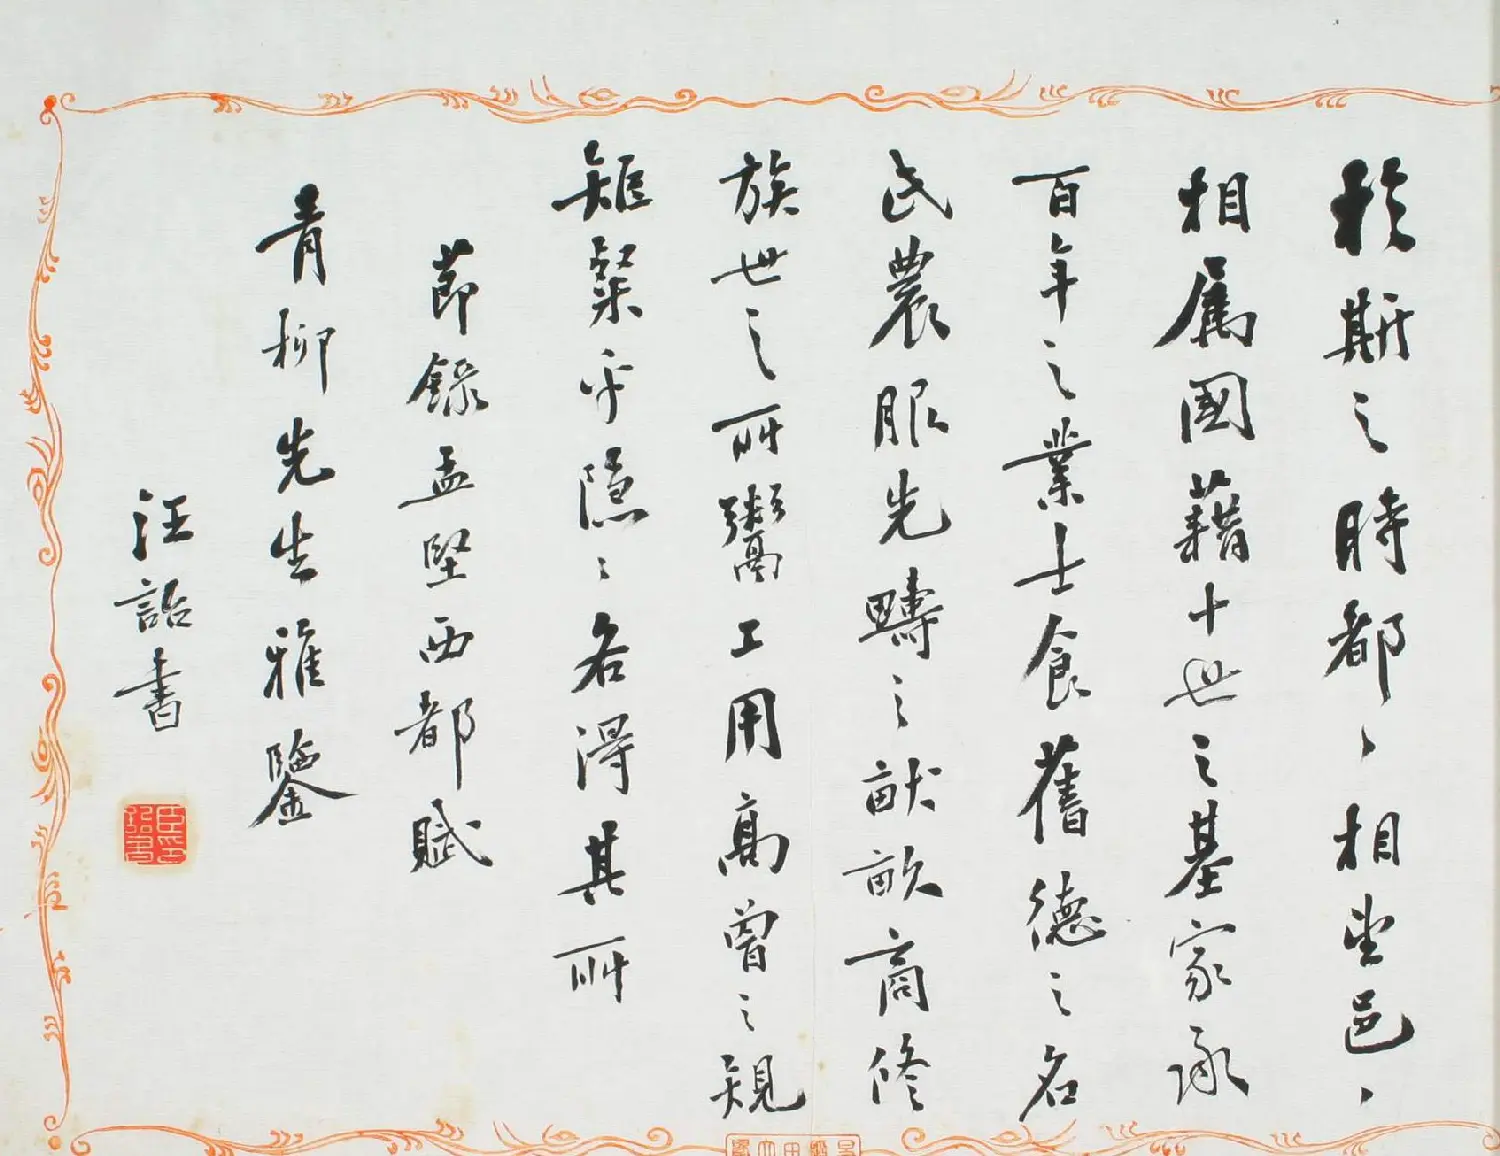 於斯之時都〻相望邑〻
相属國藉十世之基家承
百年之業士食舊德之名
氏農服先疇之畎畝商修
族世之所鬻工用高曾之規
矩粲乎隱〻各得其所
節錄孟堅西都賦
青柳先生雅鑒
汪詒書